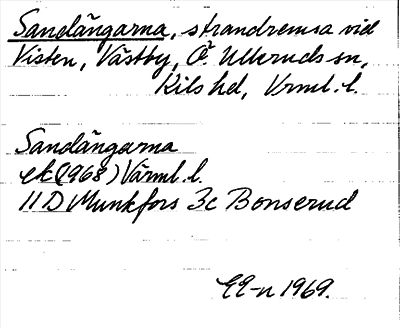 Sandängarna, strandremsa vid
Visten, Västby, Ö. Ulleruds sn,
Kils hd, Vrml. l.
Sandängarna
ek (1968) Värml. l.
11 D Munkfors 3c Bonserud
EE-n 1969.